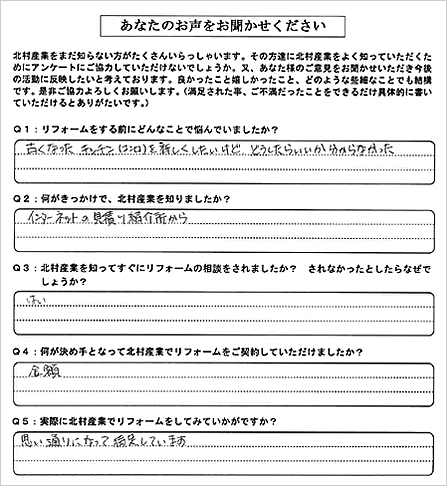 あなたのお声をお聞かせください
北村産業をまだ知らない方がたくさんいらっしゃいます。その方達に北村産業をよく知っていただくた
めにアンケートにご協力していただけないでしょうか。又、あなた様のご意見をお聞かせいただき今後
の活動に反映したいと考えております。良かったこと嬉しかったこと、どのような些細なことでも結構
です。是非ご協力よろしくお願いします。(満足された事、ご不満だったことをできるだけ具体的に書い
ていただけるとありがたいです。)
Q1:リフォームをする前にどんなことで悩んでいましたか?
古くなった キッチン(コンロ)を新しくしたいけど どうしたらいいか分からなかった
Q2:何がきっかけで、北村産業を知りましたか?
インターネットの見積り紹介所から
Q3:北村産業を知ってすぐにリフォームの相談をされましたか? されなかったとしたらなぜで
しょうか?
はい
Q4:何が決め手となって北村産業でリフォームをご契約していただけましたか?
金額
Q5:実際に北村産業でリフォームをしてみていかがですか?
思い通りになって満足しています